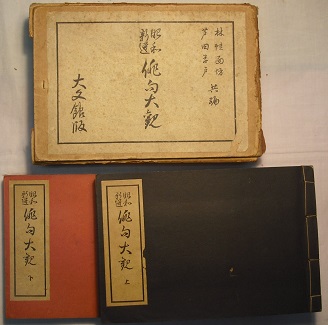 林桂画伯
芦田秋戸 共編
昭和
新選
俳句大觀
大文館版
昭和
新選
俳句大觀
上
昭和
新選
俳句大觀
下